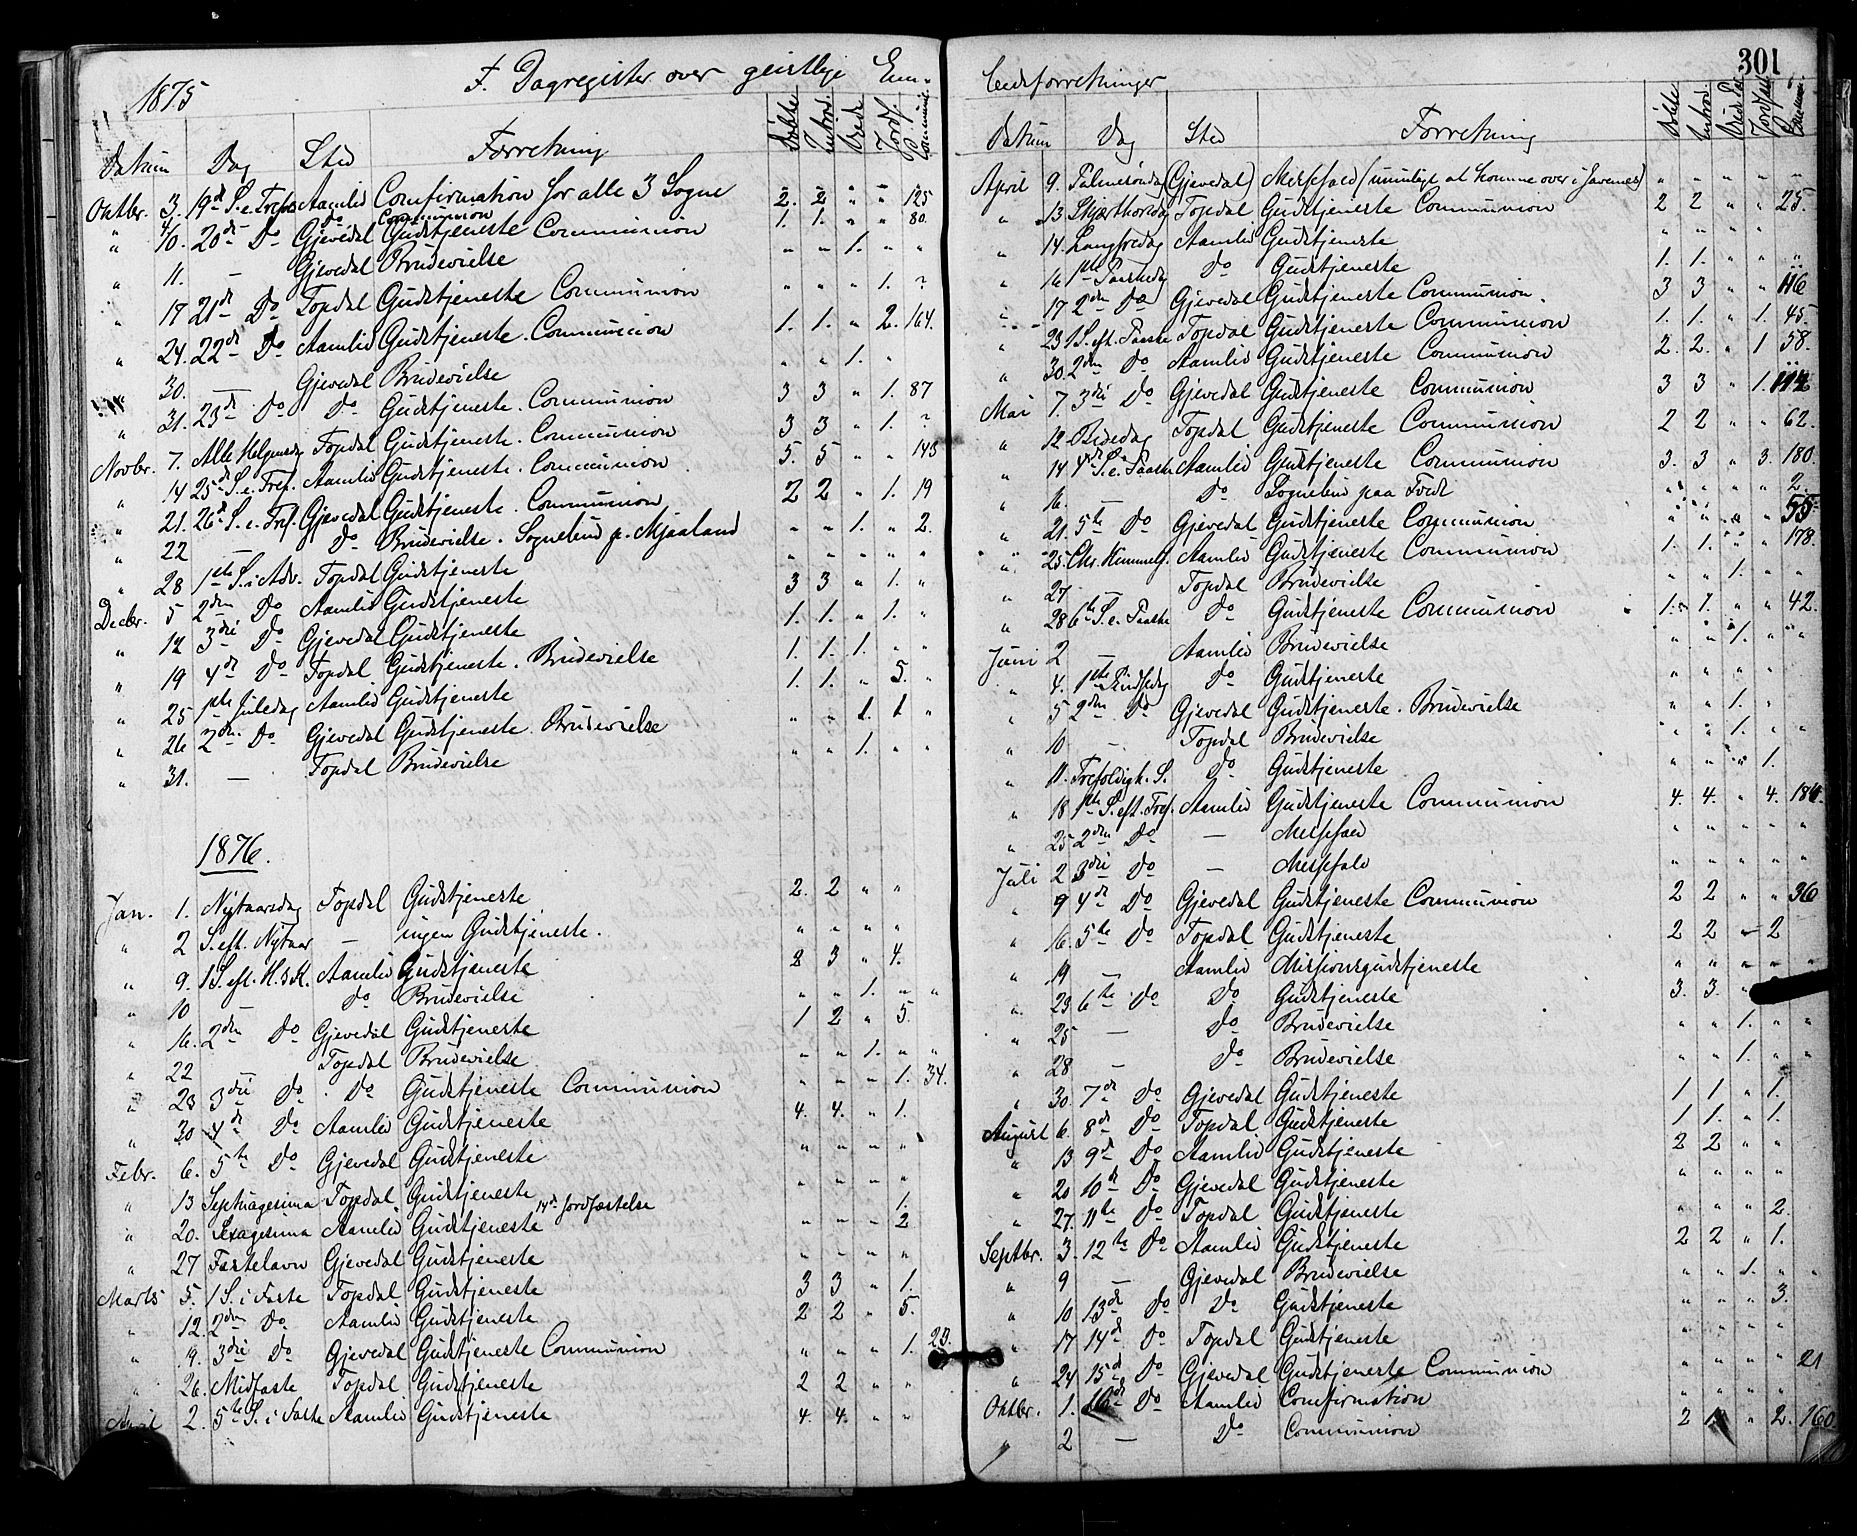 301
1875 F. Dagregister over geistlige Em-
Datum Dag Sted Forretning Døbte Introd. Viede Jordf. Commun.
Oktbr. 3. 19d S. e. Tref. Aamlid Confirmation for alle 3 Sogne 2. 2 " " 125
" 4/10. 20de Do Do Gjevedal Communion Gudstjeneste Communion 1. 1. " " 80.
" 11. — Gjevedal Brudevielse " " 1. " "
" 17 21de Do Topdal Gudstjeneste Communion " " " 1. ?
" 24. 22de Do Aamlid Gudstjeneste. Communion 1. 1. " 2. 164.
" 30. — Gjevedal Brudevielse " " 1. "
" 31. 23d Do Do Gudstjeneste. Communion 3 3 " 1. 87
Novbr. 7. Alle Helgensdag Topdal Gudstjeneste. Communion 3 3 " 1. ?
" 14 25d S. e. Tref. Aamlid Gudstjeneste. Communion 5. 5 " " 145
" 21. 26d S. e. Tref. Gjevedal Gudstjeneste. Communion 2 2 " 1. 19
" 22 Do Brudevielse. Sognebud p. Mjaaland " " 1. " 2.
" 28 1ste S. i Adv. Topdal Gudstjeneste " " " " "
Decbr. 5 2den Do Aamlid Gudstjeneste 3 3 " 1. "
" 12 3die Do Gjevedal Gudstjeneste 1. 1. " 1. "
" 19 4de Do Topdal Gudstjeneste. Brudevielse 1. 1. 1. " "
" 25 1ste Juledag Aamlid Gudstjeneste 1. 1. " 5. "
" 26 2den Do Gjevedal Gudstjeneste. Brudevielse " " 1. 1 "
" 31. — Topdal Brudevielse " " 1. " "
1876.
Jan. 1. Nytaarsdag Topdal Gudstjeneste 2. 2 " "
" 2 S. eft. Nytaar — ingen Gudstjeneste. " " " "
" 9. 1 S. eft. H. 3 K. Aamlid Gudstjeneste 2 3 " 4.
" 10 — do Brudevielse " " 1. " "
" 16. 2den Do Gjevedal Gudstjeneste 1 2 " 5.
" 22 Topdal Brudevielse " " 1. " "
" 23 3die Do Do Gudstjeneste Communion " " " 1. 34.
" 30 4de Do Aamlid Gudstjeneste 4. 4. " 1.
Febr. 6. 5te Do Gjevedal Gudstjeneste " " " "
" 13 Septuagesima Topdal Gudstjeneste 14de Jordfæstelse " " " " 1.
" 20. Sexagesima Aamlid Gudstjeneste " " " 2
" 27 Fastelavn Gjevedal Gudstjeneste " " " "
Marts 5. 1 S. i Faste Topdal Gudstjeneste 3 3 " 1.
" 12. 2den Do Aamlid Gudstjeneste 2 2 " 5.
" 19. 3die Do Gjevedal Gudstjeneste Communion " " " 1. 23.
" 26. Midfaste Topdal Gudstjeneste 2 2 " "
April 2. 5te S. i Faste Aamlid Gudstjeneste 4. 4. " "
bedsforretninger
Datum Dag Sted Forretning Døbte Introd. Viede Par Jordfæst. Commun.
April 9. Palmesøndag (Gjevedal) Messefald (umuligt at komme over i ) " " " " "
" 13 Skjærthorsdag Topdal Gudstjeneste Communion 2 2 " " 25.
" 14. Langfredag Aamlid Gudstjeneste " " " "
" 16 1ste Paaskedag Do Gudstjeneste 1. 1. " " "
" 17 2den Do Gjevedal Gudstjeneste Communion. 3 3 " " 116
" 23 1 S. eft. Paaske Topdal Gudstjeneste Communion 1. 1. " 1. 45.
" 30. 2den Do Aamlid Gudstjeneste Communion 2. 2. " 1 58.
Mai 7. 3die Do Gjevedal Gudstjeneste Communion 3 3 " 1. 112
" 12 Bededag Topdal Gudstjeneste Communion 2 2 " " 62.
" 14 4de S. e. Paaske Aamlid Gudstjeneste Communion 3. 3 " 3. 180.
" 16. — Do Sognebud paa Tvedt " " " " 2.
" 21. 5te Do Gjevedal Gudstjeneste Communion " " " " 55
" 25. Chr. Himmelf. Aamlid Gudstjeneste Communion 1. 1. " " 178.
" 27 — Topdal Brudevielse " " 1. " "
" 28 6te S. e. Paaske Do Gudstjeneste Communion 1. 1. " " 42.
Juni 2 — Aamlid Brudevielse " " 1. " "
" 4. 1ste Pindsedag Do Gudstjeneste " " " "
" 5 2den Do Gjevedal Gudstjeneste. Brudevielse " " 1. "
" 10 — Topdal Brudevielse " " 1. " "
" 11. Trefoldigh. S. Do Gudstjeneste " " " 1.
" 18 1ste S. eft. Tref. Aamlid Gudstjeneste Communion 4. 4. " 4.
" 25 2den Do — Messefald " " " " "
Juli 2 3die Do — Messefald " " " " "
" 9 4de Do Gjevedal Gudstjeneste Communion 2 2 " " 36
" 16. 5te Do Topdal Gudstjeneste 2 2 – 2
" 19 — Aamlid Missionsgudstjeneste " " " "
" 23 6te Do Do Gudstjeneste 3. 3. "
" 25 — Do Brudevielse " " 1. " "
" 28 — Do Brudevielse " " 1. " "
" 30. 7de Do Gjevedal Gudstjeneste 1 1 " 1.
August 6. 8de Do Topdal Gudstjeneste 1 1. " 1.
" 13 9d Do Aamlid Gudstjeneste 2 2 " "
" 20 10de Do Gjevedal Gudstjeneste " " " "
" 27. 11te Do Topdal Gudstjeneste " " " 2.
Septbr. 3. 12te Do Aamlid Gudstjeneste 2 2 " 1.
" 9 — Gjevedal Brudevielse " " 1. " "
" 10 13de Do Do Gudstjeneste " " " 3.
" 17 14de Do Topdal Gudstjeneste " " " "
" 24 15d Do Gjevedal Gudstjeneste Communion " " " " 21
Oktbr. 1. 16de Do Aamlid Confirmation " " " "
" 2 — Do Communion 2 1 " 2. 160.